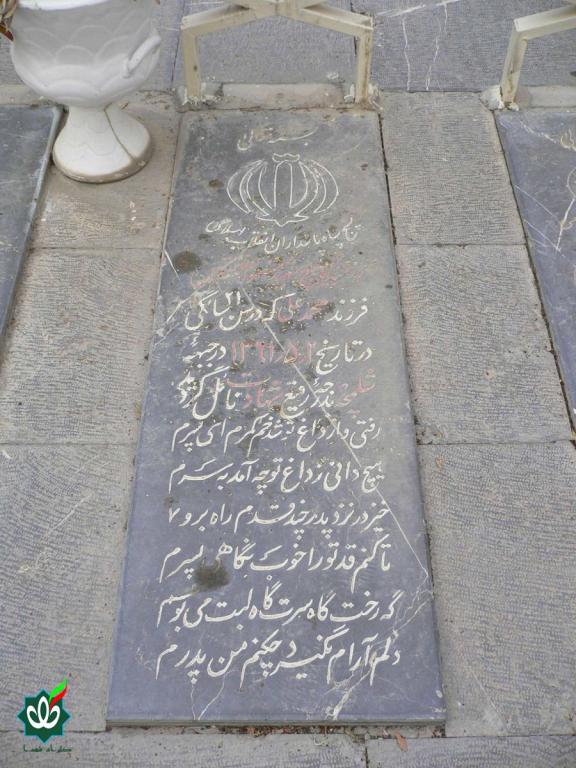 بسمه تعالی
تن پسپاه پاسداران انقلاب اسلامی
فرزند محمد علی که در سن الگی
در تاریخ ۱۳۶۱.۵.۲ در جبههٔ
شلمچه بدرجهٔ رفیع شهادت نائل گردید
رفتی و از داغ تو شد خم کمرم ای پسرم
هیچ دانی ز داغ تو چه آمد بسرم
خیز در نزد پدر چند قدم راه برو
تا کنم قد تو را خوب نگاهی پسرم
گه رخت گاه سرت گاه لبت می بوسم
دلم آرام نگیرد چکنم من پدرم